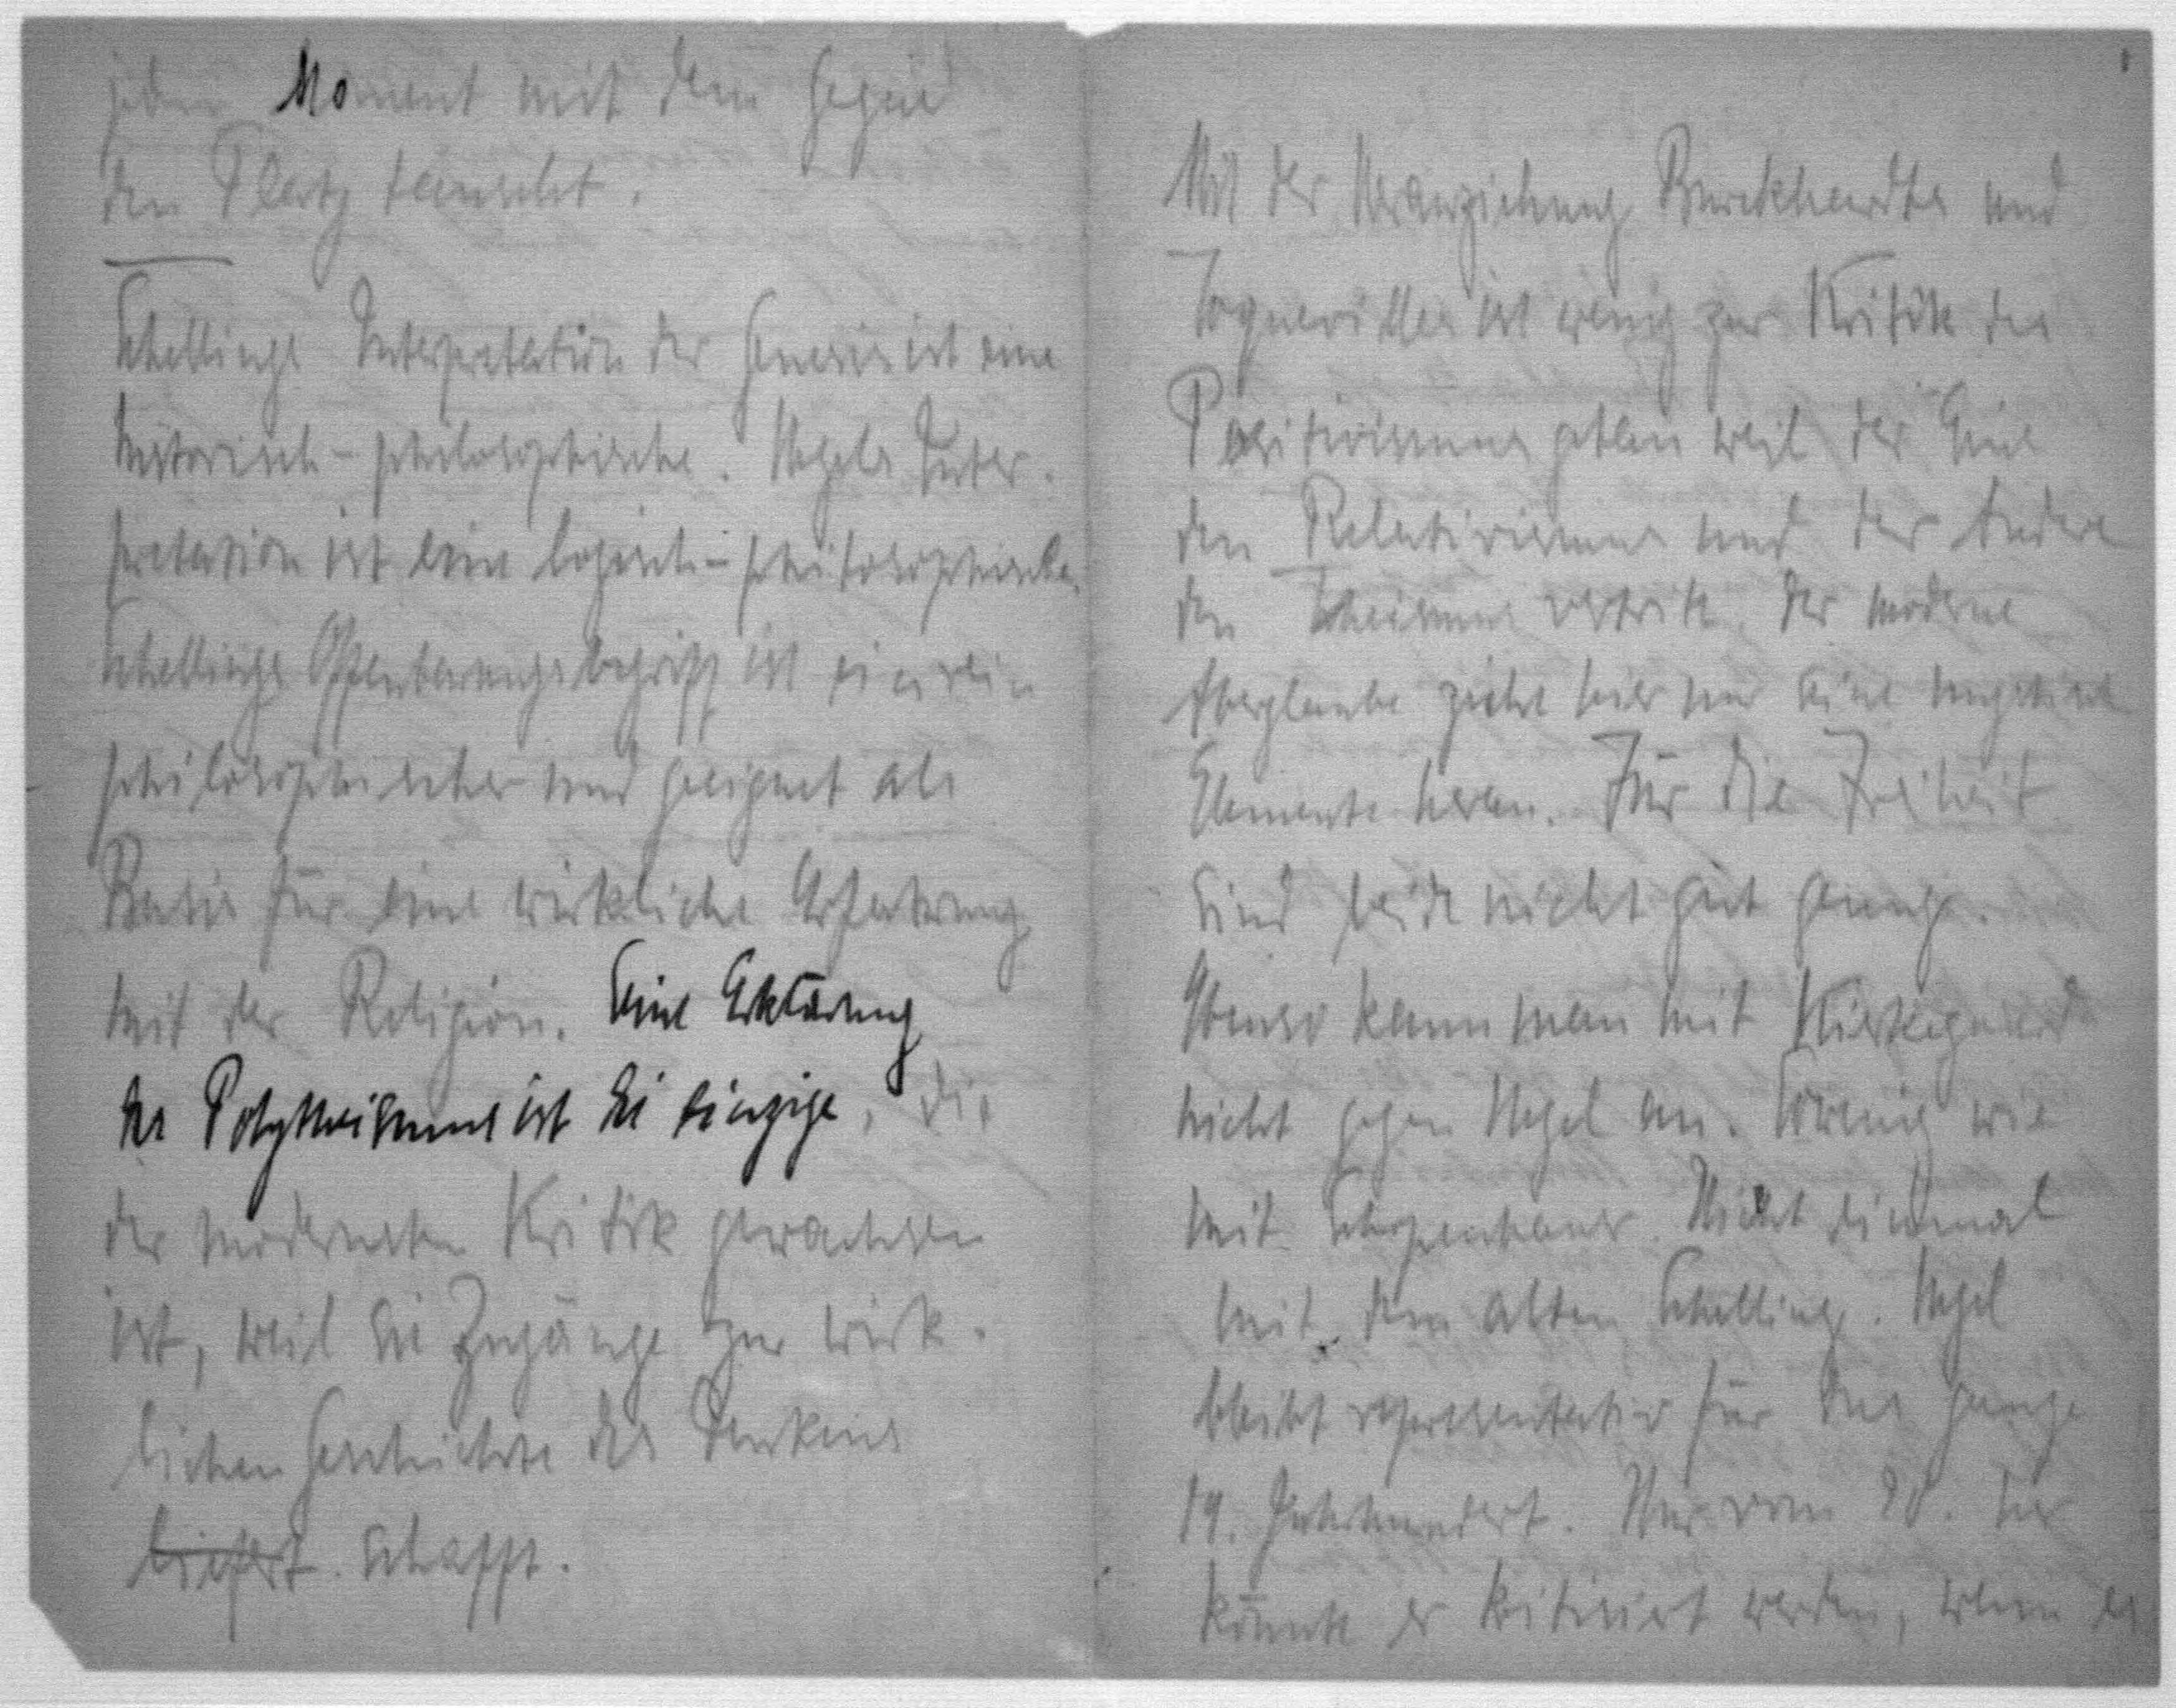 jeden Moment mit dem Gegner
den Platz tauscht.
Schellings Interpretation der Genesis ist eine
historisch-philosophische. Hegels Inter-
pretation ist eine logisch-philosophische.
Schellings Offenbarungsbegriff ist ein rein
philosophischer und geeignet als
Basis für eine wirkliche Erfahrung
mit der Religion. Seine Erklärung
des Polytheismus ist die einzige, die
der modernsten Kritik gewachsen
ist, weil sie Zugänge zur wirk-
lichen Geschichte des Denkens
liefert. schafft.
Mit der Heranziehung Burckhardts und
Tocquevilles ist wenig zur Kritik des
Positivismus getan weil der Eine
den Relativismus und der Andere
den Theismus vertritt. Der moderne
Aberglaube zieht hier nur seine
Elemente heran. Für die Freiheit
sind beide nicht gut genug.
Ebenso kann man mit Kierkegaard
nicht gegen Hegel an. Sowenig wie
mit Schopenhauer. Nicht einmal
mit dem alten Schelling. Hegel
bleibt repräsentativ für das ganze
19. Jahrhundert. Nur vom 20. her
könnte er kritisiert werden, wenn es